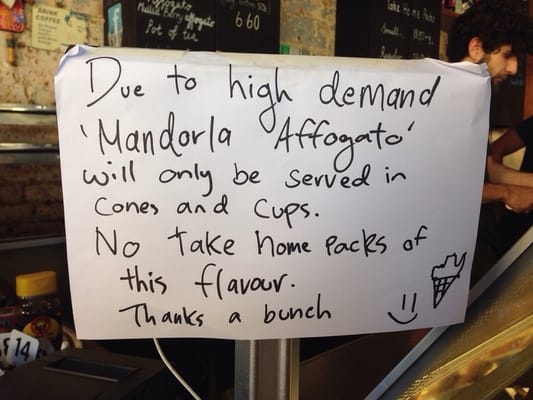 DRINK
COFFEE
Affogato
Pot of tea
660
Take Home Packs
Due to high demand
'Mandorla Affogato'
will only be served in
cones and cups.
No take home packs of
this flavour.
Thanks a bunch
14